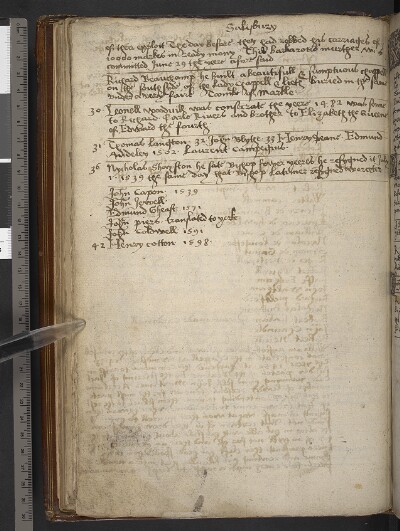 Salisbury
of this exploit The day before they had robbed his carriage of
10000 markes in ready mony This barbarous murther was
committed June 29 the yere aforesaid
Richard Beauchamp he built a beautifull & sumptuous chappell
on the south side of the Lady chappell & lieth buried in the same
under a very faire Toombe of Marble
30 Leonell woodvill was consecrate the yere 1482 was sonne
to Richard Earle Rivers and brother to Elizabeth the Queene
of Edward the fourth
31 Thomas Langton 32 John Blythe 33 Henry Deane Edmund
Audeley 1502 Laurent Campegius
36 Nycholas Shaxston he sate Bishop fower yeres he resigned it July
1 1539 the same day that Bishop Latimer resigned worcester
John Capon 1539
John Jewell
Edmund Gheast 1571
John piers translated to yorke
John Coldwell 1591
42 Henry cotton 1598